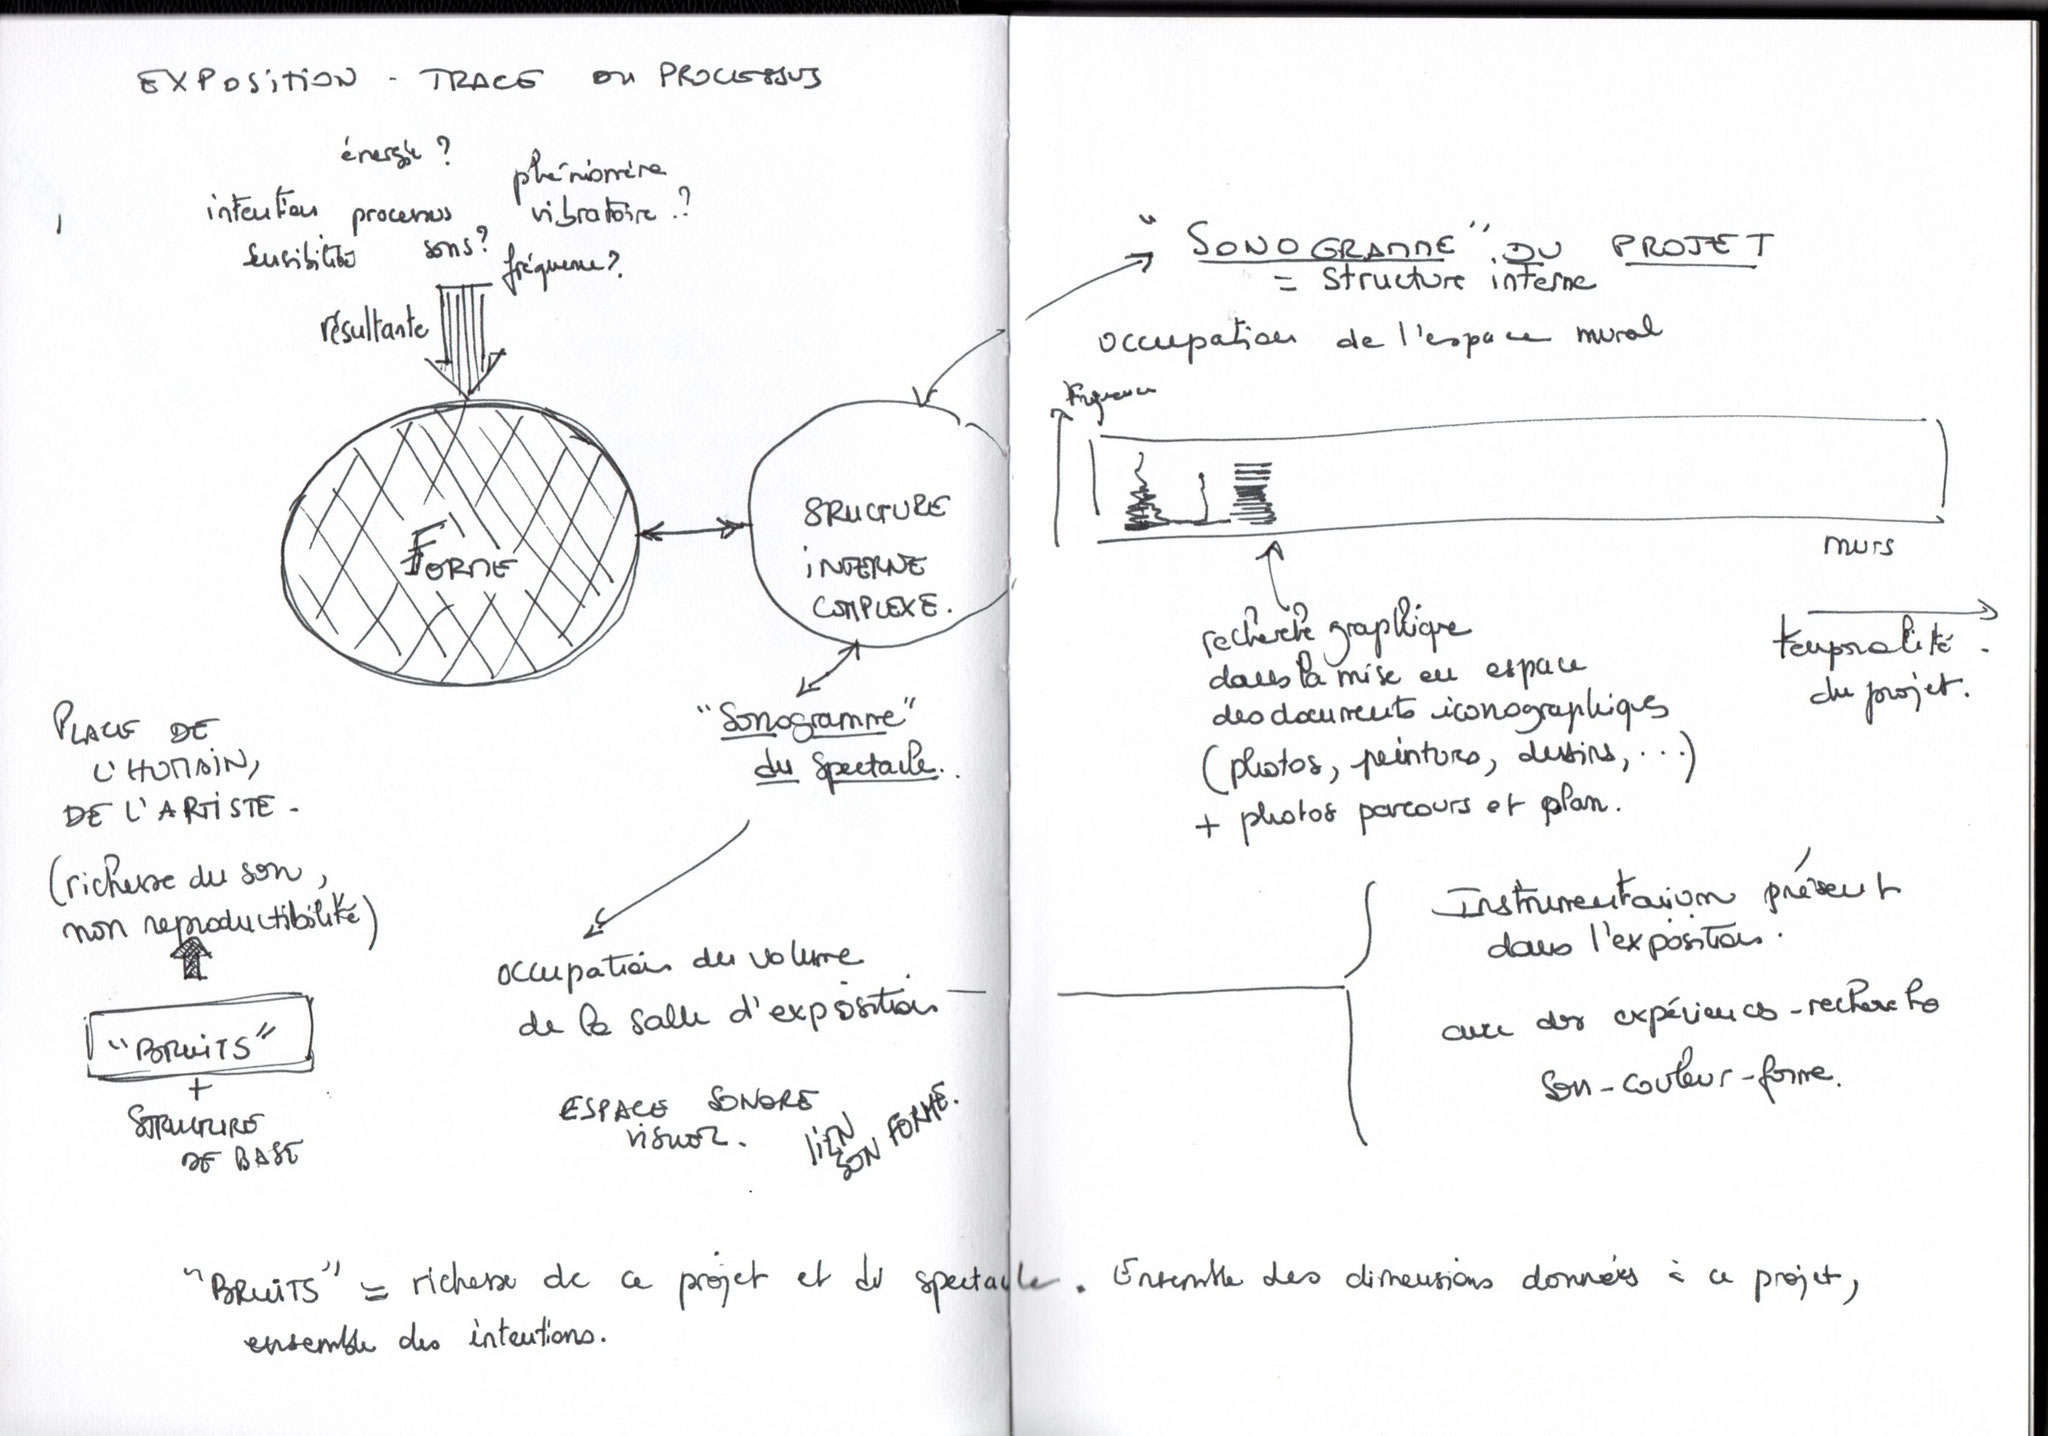 EXPOSITION - TRACE DU PROCESSUS
énergie ?
phénomène
vibratoire ?
intention processus
sensibilité sons ?
fréquence ?
résultante
FORME
STRUCTURE
INTERNE
COMPLEXE.
"Sonogramme"
du spectacle.
PLACE DE
L'HUMAIN,
DE L'ARTISTE -
(richesse du son,
non reproductibilité)
"BRUITS"
+
STRUCTURE
DE BASE
occupation du volume
de la salle d'exposition
ESPACE SONORE
VISUEL.
LIEN
SON FORME.
"SONOGRAMME" DU PROJET
= Structure interne
occupation de l'espace mural
fréquence
murs
temporalité
du projet.
recherche graphique
dans la mise en espace
des documents iconographiques
(photos, peintures, dessins, ...)
+ photos parcours et plan.
Instrumentarium présent
dans l'exposition.
avec des expériences - recherches
son - couleur - forme.
"BRUITS" = richesse de ce projet et du spectacle. Ensemble des dimensions données à ce projet,
ensemble des intentions.